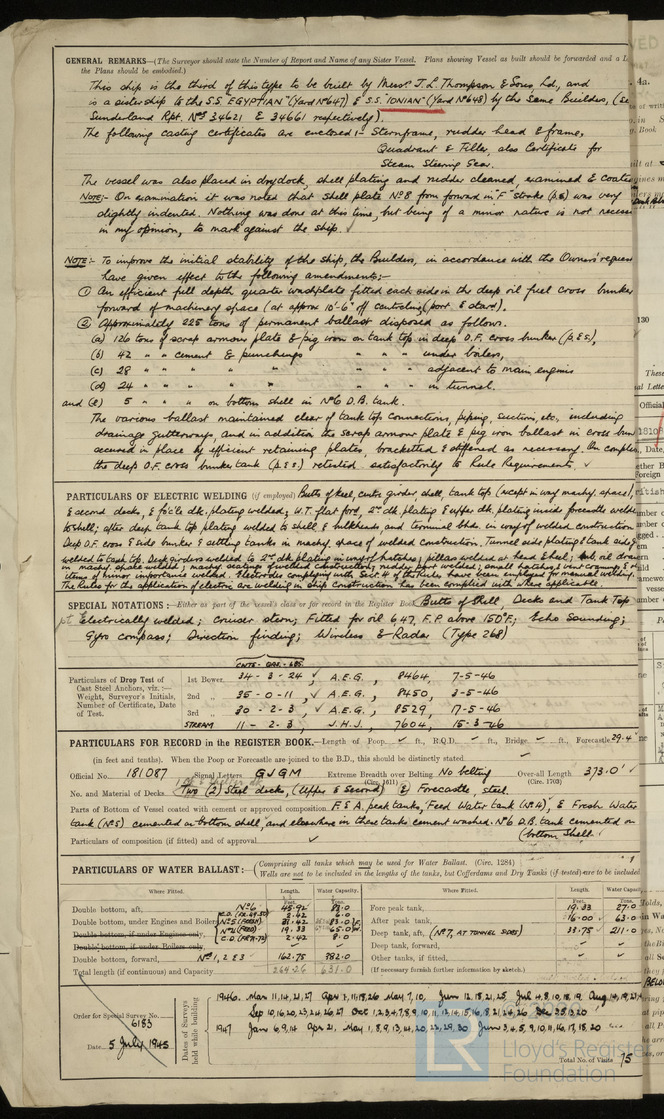 GENERAL REMARKS—(The Surveyor should state the Number of Report and Name of any Sister Vessel. Plans showing Vessel as built should be forwarded and a L
the Plans should be embodied.)
This ship is the third of this type to be built by Messrs J. L. Thompson & Sons Ld., and
is a sistership to the S.S. EGYPTIAN" (Yard Nº 647) & S.S. "IONIAN" (Yard Nº 648) by the same Builders, (See
Sunderland Rpt. Nºs 34621 & 34661 respectively).
The following casting certificates are enclosed:- Sternframe, rudder head & frame,
Quadrant & Tiller, also Certificate for
Steam Steering Gear.
The vessel was also placed in drydock, shell plating and rudder cleaned, examined & coated
NOTE:- On examination it was noted that shell plate Nº 8 from forward in "F" strake (p.s) was very
slightly indented. Nothing was done at this time, but being of a minor nature is not necess
in my opinion, to mark against the ship.
NOTE:- To improve the initial stability of the ship, the Builders, in accordance with the Owners' request
have given effect to the following amendments:-
① An efficient full depth quarter washplate fitted each side in the deep oil fuel cross bunker
forward of machinery space (at approx 10'-6" off centreline (port & starb).
② Approximately 225 tons of permanent ballast disposed as follows.
(a) 126 tons of scrap armour plate & pig iron on tank top in deep O.F. cross bunker (p.&s.),
(b) 42 " " cement & punchings " " " under boilers,
(c) 28 " " " " " " " adjacent to main engines
(d) 24 " " " " " " " in tunnel.
and (e) 5 " " " on bottom shell in Nº 6 D.B. tank.
The various ballast maintained clear of tank top connections, piping, suctions, etc., including
drainage gutterways, and in addition the scrap armour plate & pig iron ballast in cross bun
secured in place by efficient retaining plates, bracketted & stiffened as necessary. On complet
the deep O.F. cross bunker tank (p.&s) retested satisfactorily to Rule Requirements.
PARTICULARS OF ELECTRIC WELDING (if employed) Butts of keel, centre girder, shell, tank top (except in way machy. space),
& second decks, & fo'c'le dk. plating welded; W.T. flat ford, 2nd dk. plating & upper dk. plating inside forecastle welded
to shell; after deep tank top plating welded to shell & bulkheads, and terminal bhd. in way of welded construction
Deep O.F. cross & side bunker & settling tanks in machy. space of welded construction. Tunnel side plating & tank side
welded to tank top. Deep girders welded to 2nd dk plating in way of hatches; pillars welded at head & heel;
in machy. space welded; machy. seatings of welded construction; rudder part welded; small hatches & vent
items of minor importance welded. Electrodes complying with Sect. 4 of the Rules have been employed for manual welding.
The Rules for the application of electric arc welding in ship construction has been complied with where applicable.
SPECIAL NOTATIONS:—Either as part of the vessel's class or for record in the Register Book Butts of Shell, Decks and Tank Top
pt. Electrically welded; Cruiser stern; Fitted for oil 6,47, F.P. above 150°F; Echo Sounding;
Gyro compass; Direction finding; Wireless & Radar (Type 268)
CWTS - QRS - LBS
Particulars of Drop Test of
Cast Steel Anchors, viz.:—
Weight, Surveyor's Initials,
Number of Certificate, Date
of Test.
1st Bower 34 - 3 - 24, A.E.G., 8464, 7-5-46
2nd " 35 - 0 - 11, A.E.G., 8450, 3-5-46
3rd " 30 - 2 - 3, A.E.G., 8529, 17-5-46
STREAM 11 - 2 - 3, J.H.J., 7604, 15-3-46
PARTICULARS FOR RECORD in the REGISTER BOOK.—Length of Poop ft., R.Q.D. ft., Bridge ft., Forecastle 29.4
(in feet and tenths). When the Poop or Forecastle are joined to the B.D., this should be distinctly stated.
Official No. 181087 Signal Letters GJGM Extreme Breadth over Belting No belting Over-all Length 373.0'
(Circ. 1611) (Circ. 1703)
No. and Material of Decks Two (2) Steel decks, (Upper & Second) & Forecastle, steel.
Parts of Bottom of Vessel coated with cement or approved composition F. & A. peak tanks, Feed Water tank (Nº 4), & Fresh Water
tank (Nº 5) cemented on bottom shell, and elsewhere in these tanks cement washed. Nº 6 D.B. tank cemented on
bottom shell.
Particulars of composition (if fitted) and of approval
PARTICULARS OF WATER BALLAST:— (Comprising all tanks which may be used for Water Ballast. (Circ. 1284)
Wells are not to be included in the lengths of the tanks, but Cofferdams and Dry Tanks (if tested) are to be included
Where Fitted. Length. Water Capacity. Where Fitted. Length. Water Capacity
Feet. Tons. Feet. Tons.
Double bottom, aft, Nº 6 45.92 83.0 Fore peak tank, 19.33 27.0
C.D. (FR. 49-50) 2.42 6.0
Double bottom, under Engines and Boilers Nº 5 (FRESH) 31.42 83.0 F. After peak tank, 16.00 63.0
Double bottom, if under Engines only, Nº 4 (FEED) 19.33 65.0 Deep tank, aft, (Nº 7, AT TUNNEL SIDES) 33.75 211.0
C.D. (FR 71-72) 2.42 8.0
Double bottom, if under Boilers only, Deep tank, forward,
Double bottom, forward, Nº 1, 2 & 3 162.75 382.0 Other tanks, if fitted,
Total length (if continuous) and Capacity 264.26 631.0 (If necessary furnish further information by sketch.)
Order for Special Survey No.
6183
Date 5 July 1945
Dates of Surveys
held while building
1946. Mar 11, 14, 21, 27 Apr 7, 11, 18, 26 May 7, 10, Jun 12, 18, 21, 25 Jul 4, 8, 10, 18, 19, Aug 14, 19, 21
Sep 10, 16, 20, 23, 24, 26, 27 Oct 1, 2, 3, 4, 7, 8, 9, 10, 11, 12, 14, 15, 16, 18, 21, 24, 26
1947 Jan 6, 9, 14 Apr 21, May 1, 8, 9, 13, 14, 20, 23, 29, 30 June 3, 4, 5, 9, 10, 11, 16, 17, 18, 20
Total No. of Visits 75
LR Lloyd's Register
Foundation